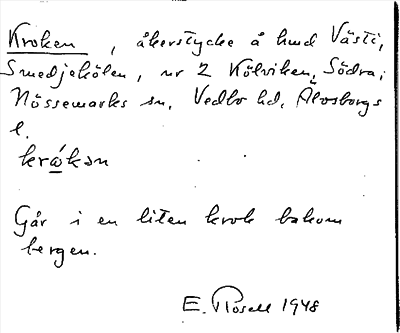 Kroken, åkerstycke å hmd Västi,
Smedjekölen, nr 2 Kölviken, Södra,
Nössemarks sn, Vedbo hd, Älvsborgs
l.
krɷ́kən
Går i en liten krok bakom
bergen.
E. Rosell 1948